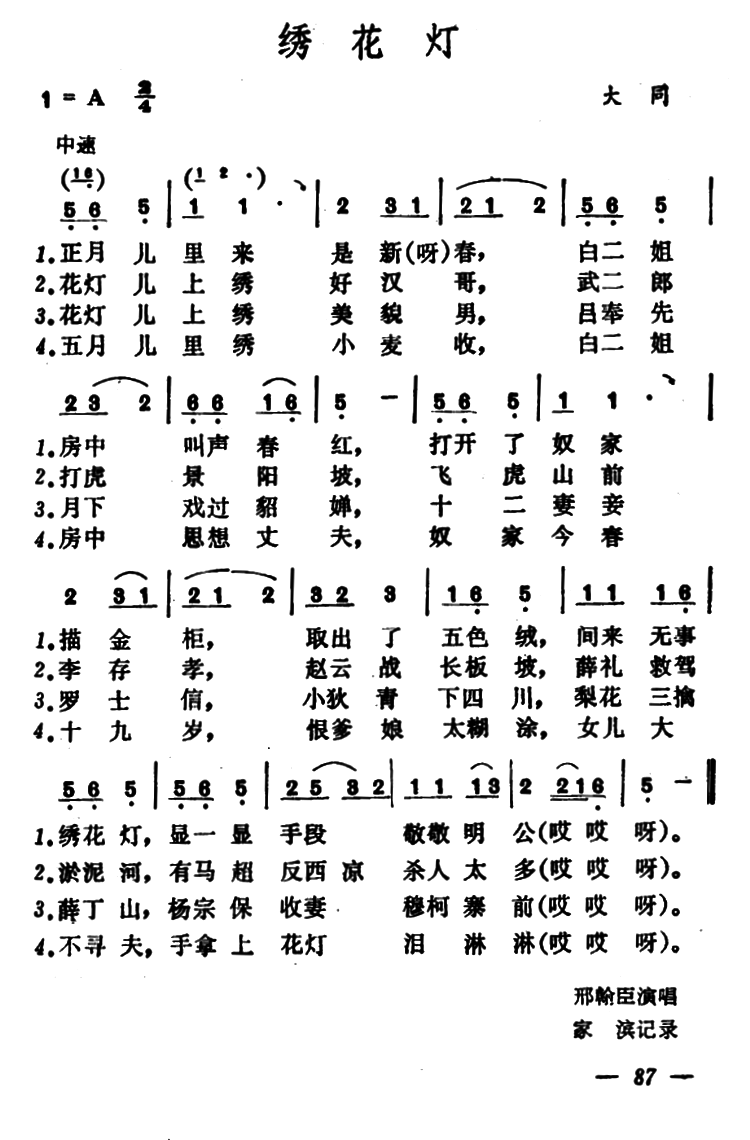 绣花灯
1=A 2/4 大同
中速
(16) (1 2 ·)
5 6 5 | 1 1 · | 2 3 1 | 2 1 2 | 5 6 5 |
1.正月 儿 里 来 是 新(呀)春, 白二 姐
2.花灯 儿 上 绣 好 汉 哥, 武二 郎
3.花灯 儿 上 绣 美 貌 男, 吕奉 先
4.五月 儿 里 绣 小 麦 收, 白二 姐
2 3 2 | 6 6 1 6 | 5 － | 5 6 5 | 1 1 · |
1.房中 叫声 春 红, 打开 了 奴 家
2.打虎 景 阳 坡, 飞 虎 山 前
3.月下 戏过 貂 婵, 十 二 妻 妾
4.房中 思想 丈 夫, 奴 家 今 春
2 3 1 | 2 1 2 | 3 2 3 | 1 6 5 | 1 1 1 6 |
1.描 金 柜, 取出 了 五色 绒, 间来 无事
2.李 存 孝, 赵云 战 长板 坡, 薛礼 救驾
3.罗 士 信, 小狄 青 下四 川, 梨花 三擒
4.十 九 岁, 恨爹 娘 太糊 涂, 女儿 大
5 6 5 | 5 6 5 | 2 5 3 2 | 1 1 1 3 | 2 2 1 6 | 5 － ‖
1.绣花 灯, 显一 显 手段 敬敬 明 公(哎 哎 呀)。
2.淤泥 河, 有马 超 反西 凉 杀人 太 多(哎 哎 呀)。
3.薛丁 山, 杨宗 保 收妻 穆柯 寨 前(哎 哎 呀)。
4.不寻 夫, 手拿 上 花灯 泪 淋 淋(哎 哎 呀)。
邢翰臣演唱
家 滨记录
— 87 —